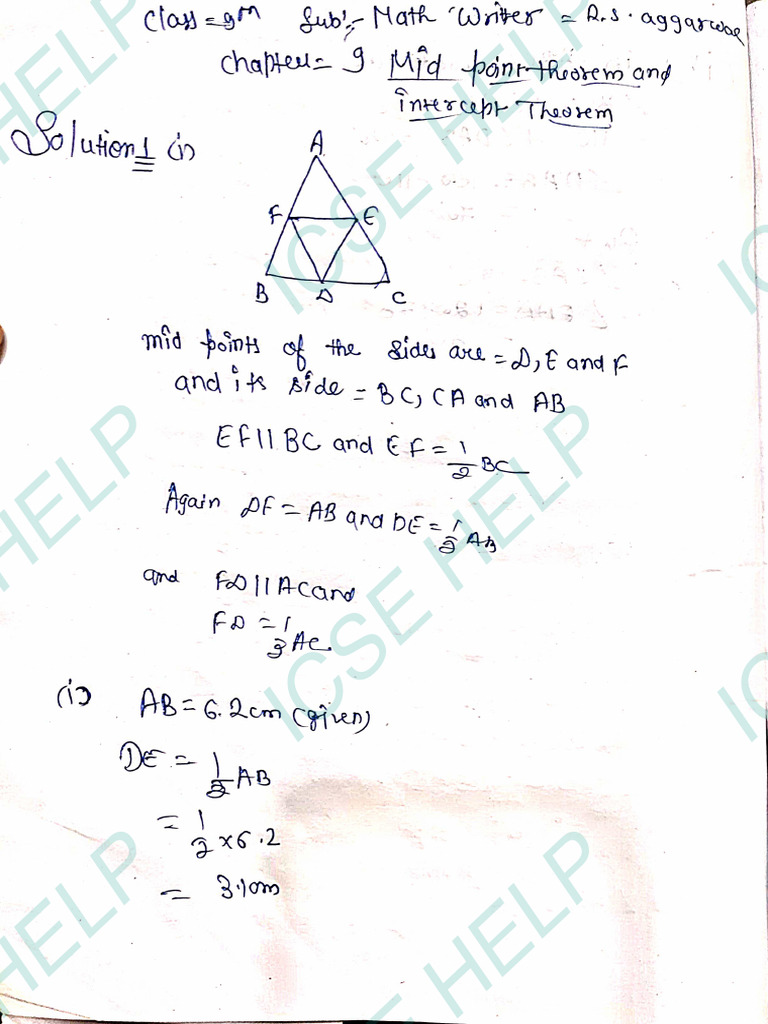 Class = 9th Sub:- Math Writer = R.S. aggarwal
Chapter = 9 Mid point theorem and
intercept Theorem
Solution 1 (i)
A
F E
B D C
mid points of the sides are = D, E and F
and its side = BC, CA and AB
EF || BC and EF = 1/2 BC
Again DF = AB and DE = 1/2 AB
and FD || AC and
FD = 1/2 AC
(i) AB = 6.2cm (given)
DE = 1/2 AB
= 1/2 × 6.2
= 3.1cm
ICSE HELP